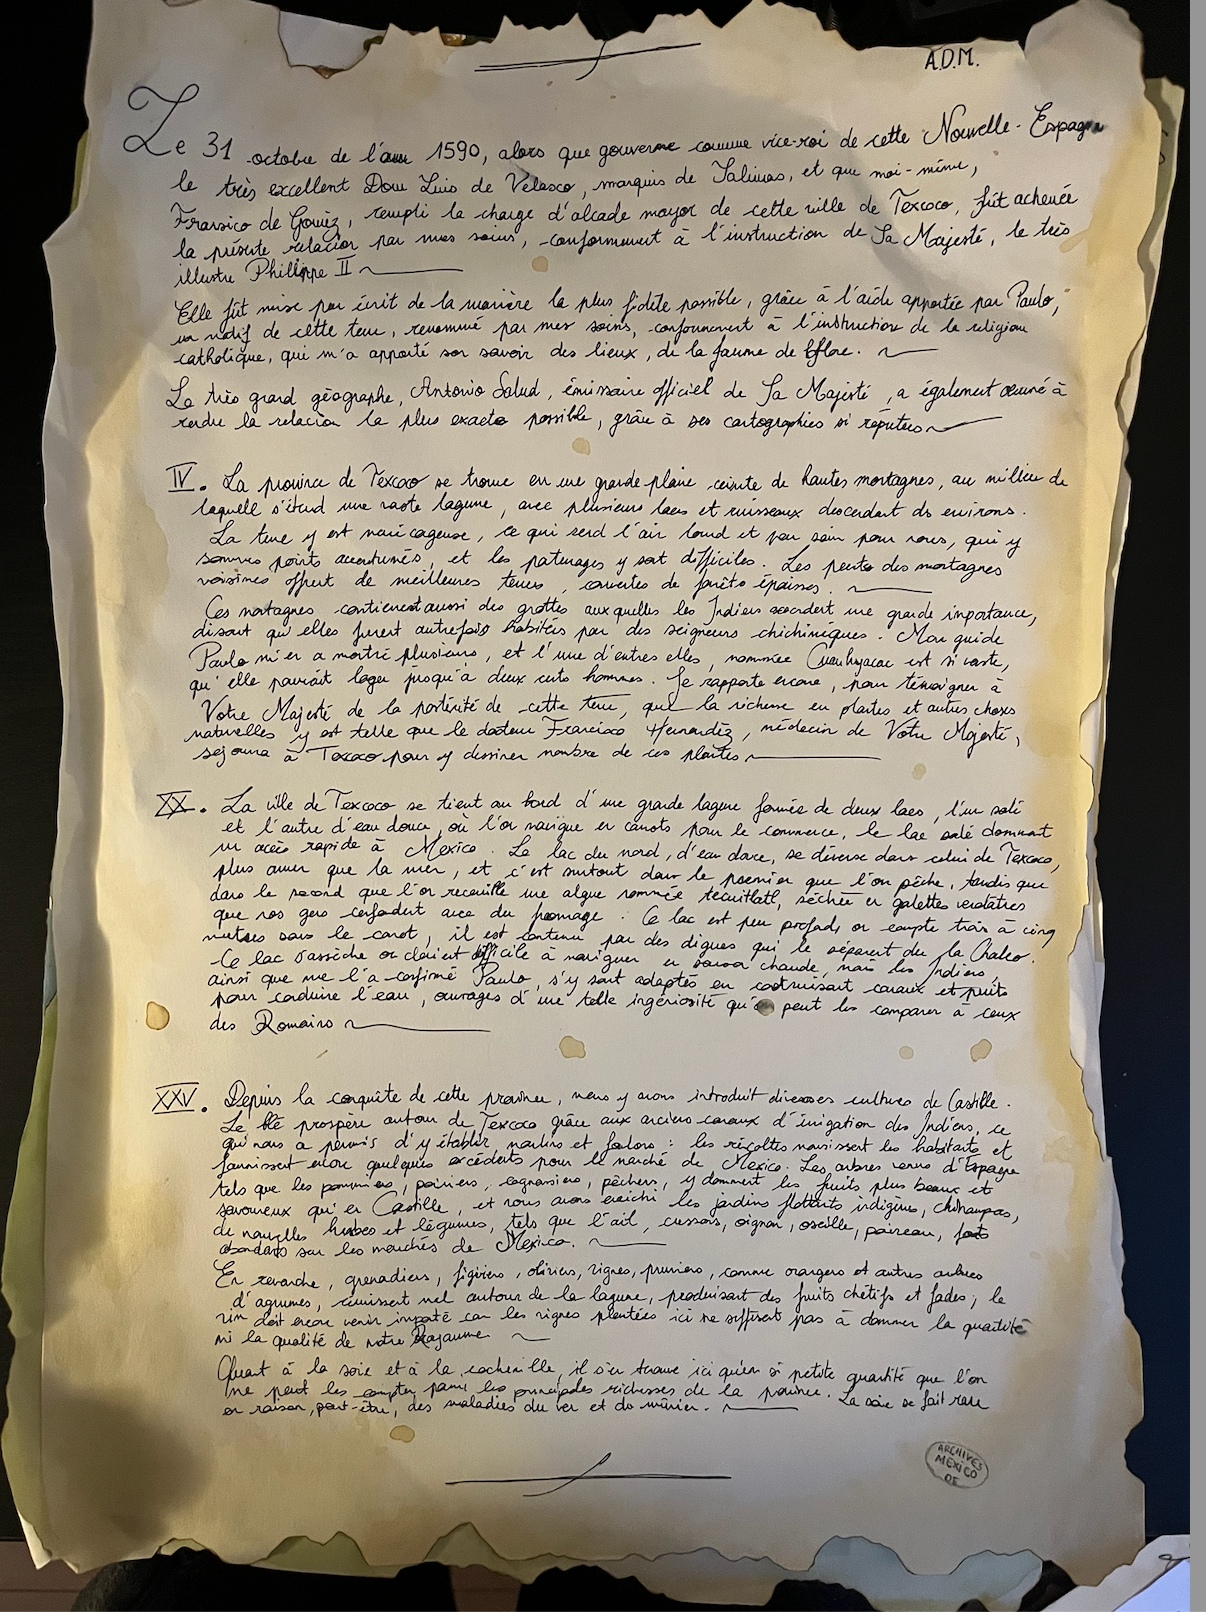 A.D.M.
Le 31 octobre de l'an 1590, alors que gouverne comme vice-roi de cette Nouvelle-Espagne
le très excellent Don Luis de Velasco, marquis de Salinas, et que moi-même,
de Goméz, rempli la charge d'alcade mayor de cette ville de Texcoco, fût achevée
la présente relación par mes soins, conformément à l'instruction de Sa Majesté, le très
illustre Philippe II
Elle fût mise par écrit de la manière la plus fidèle possible, grâce à l'aide apportée par Paulo,
un natif de cette terre, renommé par mes soins, conformément à l'instruction de la religion
catholique, qui m'a apporté son savoir des lieux, de la faune de
Le très grand géographe, Antonio Salud, émissaire officiel de Sa Majesté, a également œuvré à
rendre la relación la plus exacte possible, grâce à ses cartographies si réputées
IV. La province de Texcoco se trouve en une grande plaine ceinte de hautes montagnes, au milieu de
laquell s'étend une vaste lagune, avec plusieurs lacs et ruisseaux descendant des environs.
La terre y est marécageuse, ce qui rend l'air lourd et peu sain pour nous, qui y
sommes points accoutumés, et les paturages y sont difficiles. Les pentes des montagnes
voisines offrent de meilleures terres, couvertes de forêts épaisses.
Ces montagnes contiennent aussi des grottes auxquelles les Indiens accordent une grande importance,
disant qu'elles furent autrefois habitées par des seigneurs chichimèques. Mon guide
Paulo m'en a montré plusieurs, et l'une d'entres elles, nommée est si vaste,
qu'elle pourrait loger jusqu'à deux cents hommes. Je rapporte encore, pour témoigner à
Votre Majesté de la postérité de cette terre, que la richesse en plantes et autres choses
naturelles y est telle que le docteur Francisco Hernandéz, médecin de Votre Majesté,
séjourna à Texcoco pour y dessiner nombre de ces plantes
XX. La ville de Texcoco se tient au bord d'une grande lagune formée de deux lacs, l'un salé
et l'autre d'eau douce, où l'on navigue en canots pour le commerce, le lac salé donnant
un accès rapide à Mexico. Le lac du nord, d'eau douce, se déverse dans celui de Texcoco,
plus amer que la mer, et c'est surtout dans le premier que l'on pêche, tandis que
dans le second que l'on recueille une algue nommée tecuitlatl, séchée en galettes verdâtres
que nos gens confondent avec du fromage. Ce lac est peu profond, on compte trois à cinq
mètres sous le canot, il est contenu par des digues qui le séparent de la Chalco.
Ce lac s'assèche on difficile à naviguer en saison chaude, mais les Indiens,
ainsi que me l'a confirmé Paulo, s'y sont adaptés en construisant canaux et puits
pour conduire l'eau, ouvrages d'une telle ingéniosité qu'on peut les comparer à ceux
des Romains
XXV. Depuis la conquête de cette province, nous y avons introduit diverses cultures de Castille.
Le blé prospère autour de Texcoco grâce aux anciens canaux d'irrigation des Indiens, ce
qui nous a permis d'y établir moulins et foulons : les récoltes nourissent les habitants et
fournissent encore quelques excédents pour le marché de Mexico. Les arbres venus d'Espagne
tels que les pommiers, poiriers, cognassiers, pêchers, y donnent les fruits plus beaux et
savoureux qu'en Castille, et nous avons enrichi les jardins flottants indigènes, chinampas,
de nouvelles herbes et légumes, tels que l'ail, cressons, oignon, oseille, poireau, forts
abondants sur les marchés de Mexico.
En revanche, grenadiers, figuiers, oliviers, vignes, pruniers, comme orangers et autres arbres
d'agrumes, réussissent mal autour de la lagune, produisant des fruits chétifs et fades ; le
vin doit encore venir importé car les vignes plantées ici ne suffisent pas à donner la quantité
ni la qualité de notre Royaume
Quant à la soie et à la cochenille, il s'en trouve ici qu'en si petite quantité que l'on
ne peut les compter parmi les principales richesses de la province. La soie se fait rare
en raison, peut-être, des maladies du ver et du mûrier.
ARCHIVES
MEXICO
DF